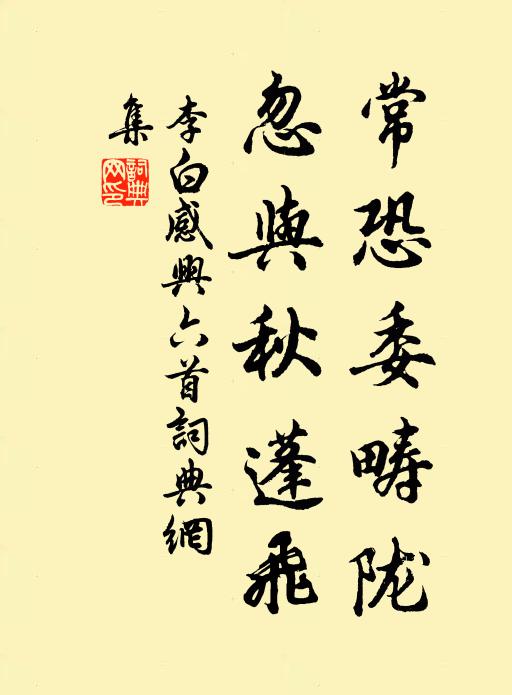 常恐委畴陇
忽與秋蓬飛
李白感興六首詞典網
集
詞典網印